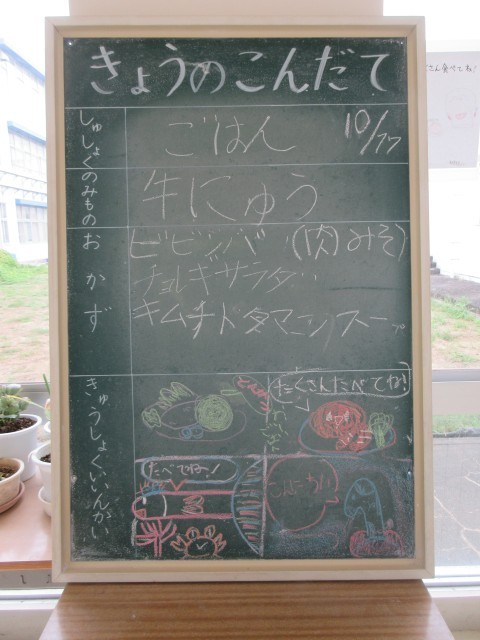 きょうのこんだて
しゅしょく
ごはん
10/17
のみもの
牛にゅう
おかず
ビビンバ (肉みそ)
チョレギサラダ
キムチトタマゴノスープ
きゅうしょくいいんかい
たくさんたべてね!
たべてね!
こんにちは
さん食べてね!